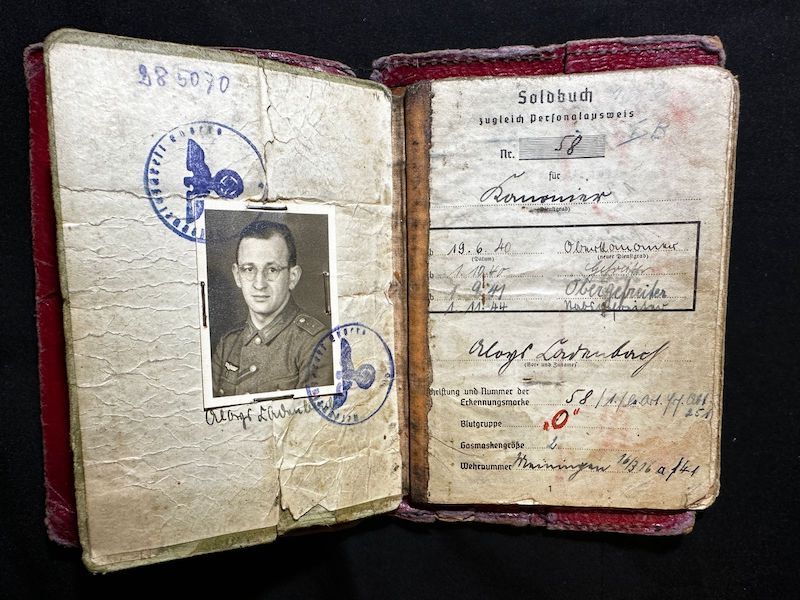 285070
Aloys Ladenbach
Soldbuch
zugleich Personalausweis
Nr. 58
für
Kanonier
(Dienstgrad)
19.6.40 Oberkanonier
(Datum) (neuer Dienstgrad)
1.10.40 Gefreiter
1.9.41 Obergefreiter
1.11.44 Stabsgefreiter
Aloys Ladenbach
(Vor- und Zuname)
Beschriftung und Nummer der
Erkennungsmarke 58
Blutgruppe „O“
Gasmaskengröße 2
Wehrnummer Meiningen 16/3 16 a /41
1